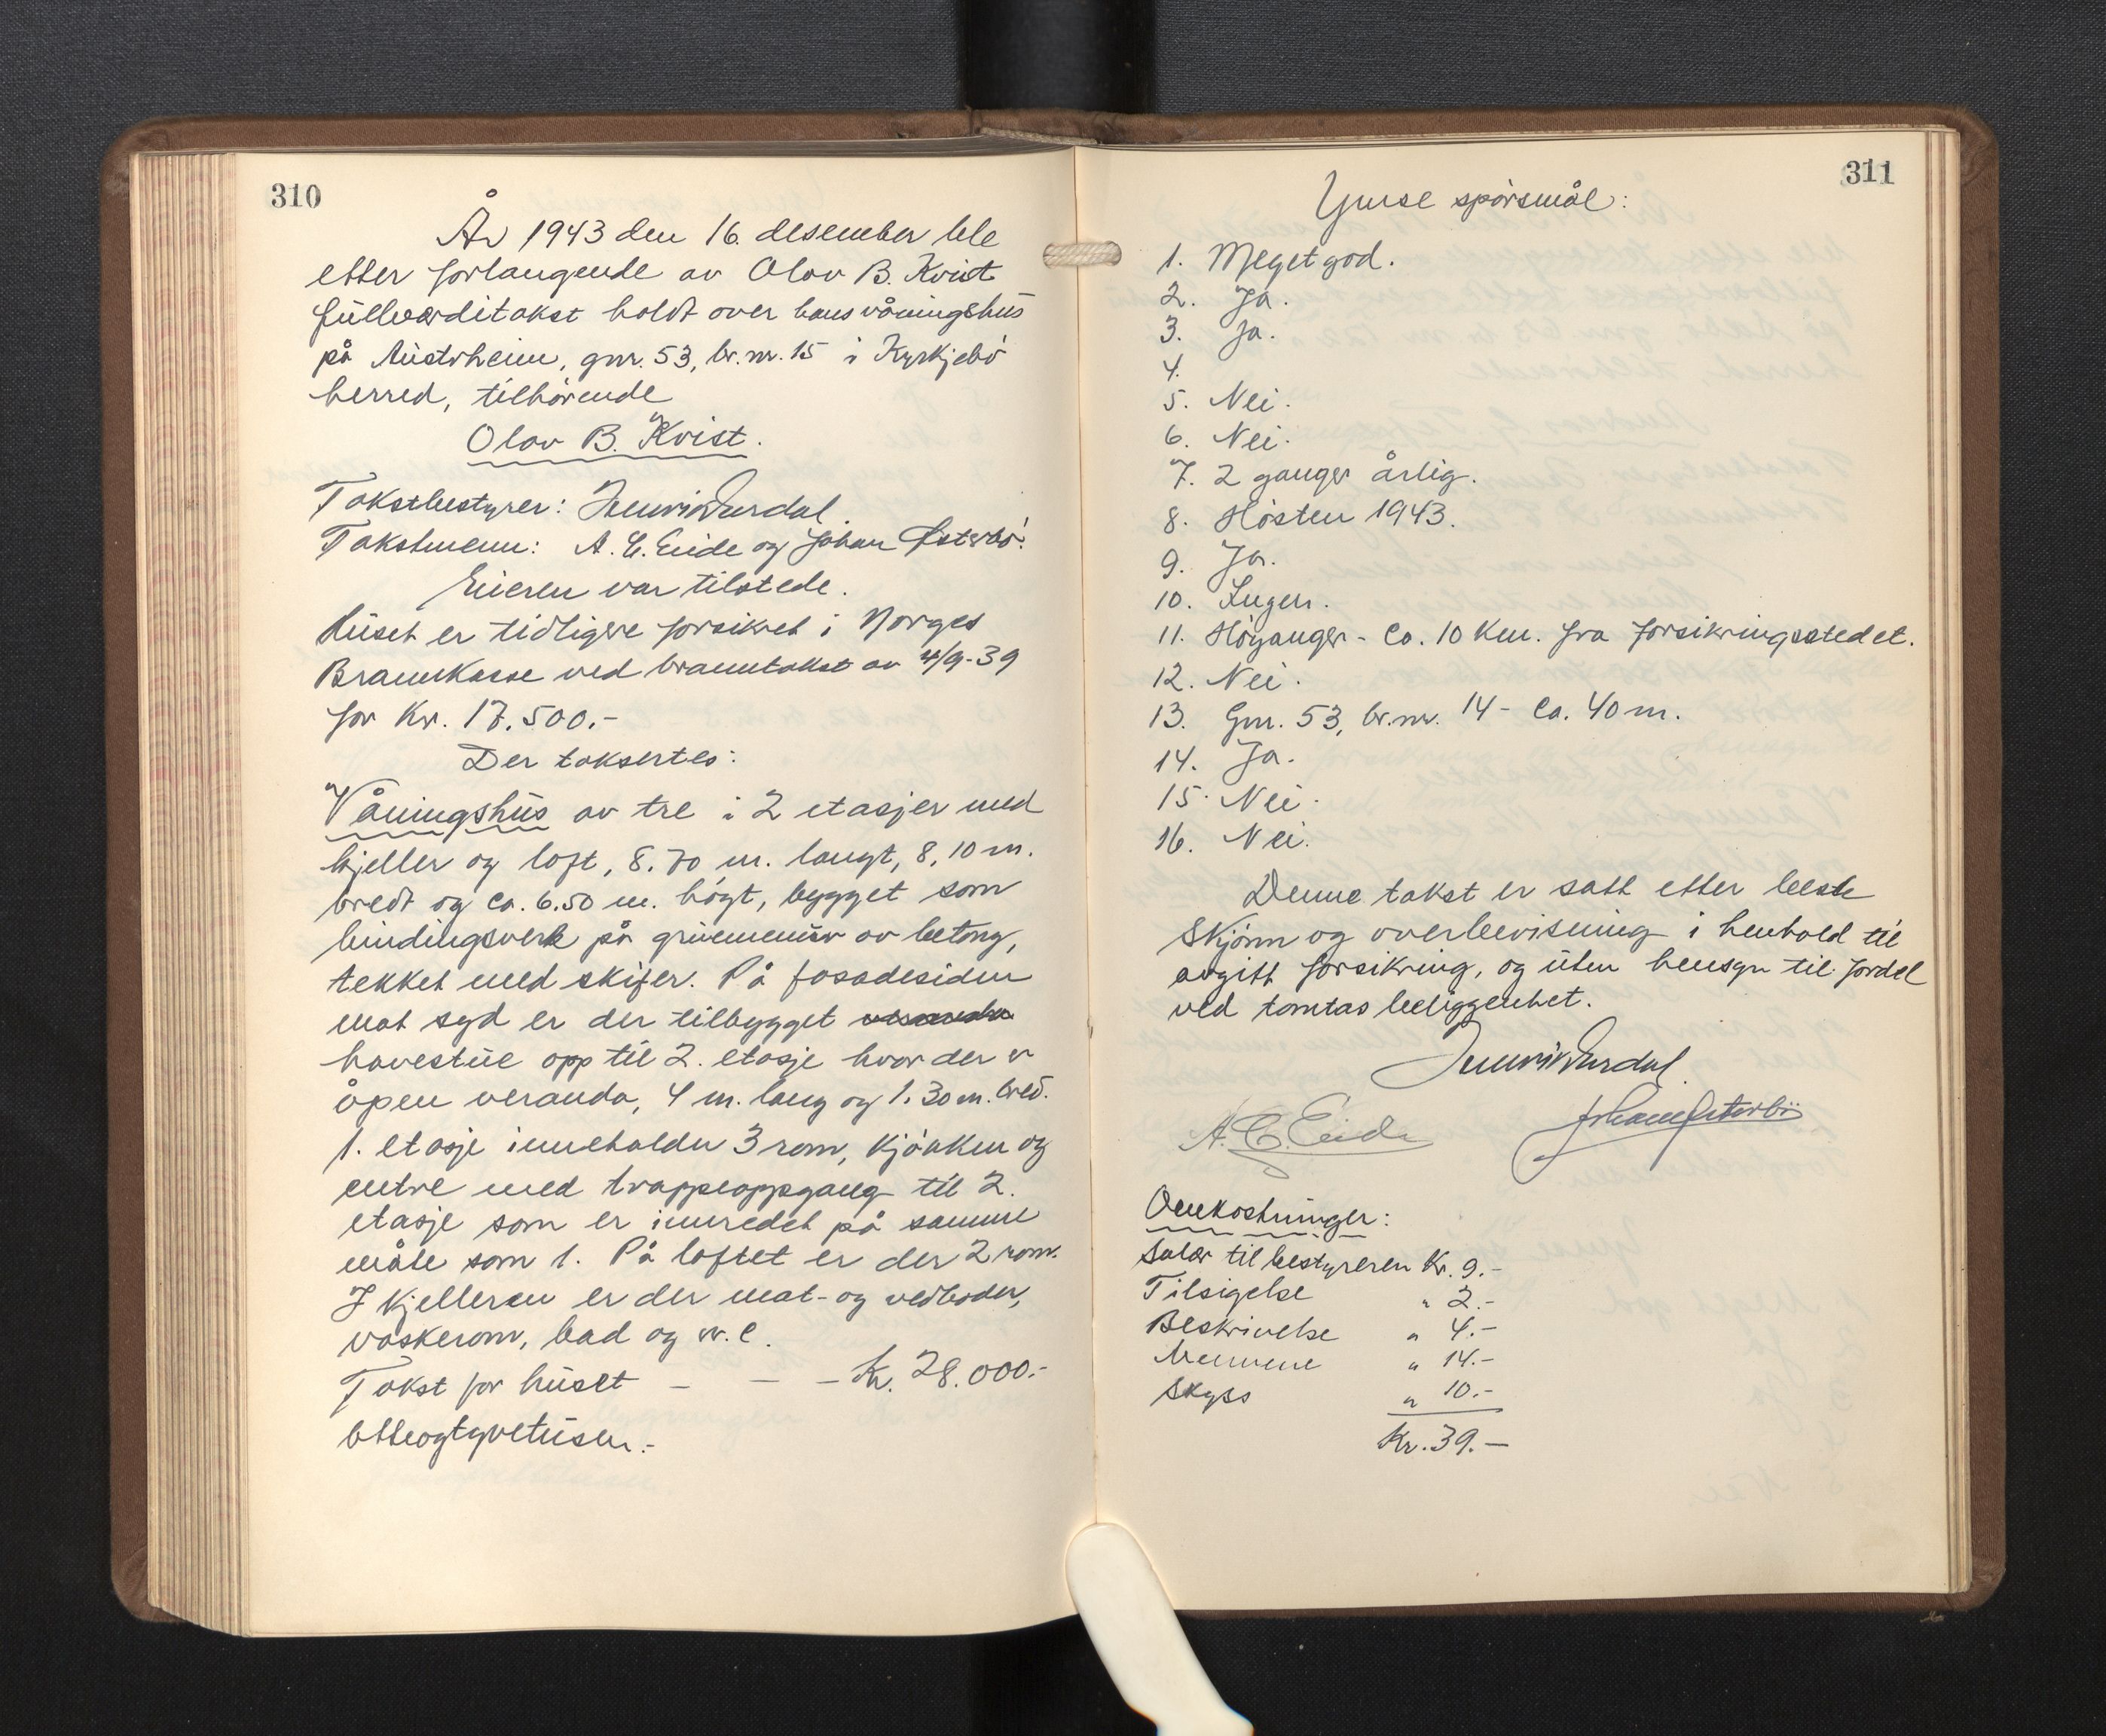 310
År 1943 den 16. desember ble
etter forlangende av Olav B. Kvist
fullverditakst holdt over hans våningshus
på Austrheim, gnr. 53, br.nr. 15 i Kyrkjebø
herred, tilhørende
Olav B. Kvist.
Takstbestyrer:
Takstmenn: A. C. Eide og Johan Østerbø.
Eieren var tilstede.
Huset er tidligere forsikret i Norges
Brannkasse ved branntakst av 4/9-39
for kr. 17.500.-
Der taksertes:
Våningshus av tre i 2 etasjer med
kjeller og loft, 8.70 m. langt, 8,10 m.
bredt og ca. 6.50 m. høgt, bygget som
bindingsverk på grunnmur av betong,
tekket med skifer. På fasadesiden
mot syd er der tilbygget veranda
havestue opp til 2. etasje hvor der er
åpen veranda, 4 m. lang og 1.30 m. bred.
1. etasje inneholder 3 rom, kjøkken og
entre med trappeoppgang til 2.
etasje som er innredet på samme
måte som 1. På loftet er der 2 rom.
I kjelleren er der mat- og vedboder,
vaskerom, bad og w.c.
Takst for huset - - - Kr. 28.000.-
åtteogtyvetusen.-
311
Ymse spørsmål:
1. Meget god.
2. Ja.
3. Ja.
4.
5. Nei.
6. Nei.
7. 2 ganger årlig.
8. Høsten 1943.
9. Ja.
10. Ingen.
11. Høyanger - ca. 10 km. fra forsikringsstedet.
12. Nei.
13. Gnr. 53, br.nr. 14 - ca. 40 m.
14. Ja.
15. Nei.
16. Nei.
Denne takst er satt etter beste
skjønn og overbevisning i henhold til
avgitt forsikring, og uten hensyn til fordel
ved tomtas beliggenhet.
A. C. Eide Johan Østerbø
Omkostninger:
Salær til bestyreren Kr. 9.-
Tilsigelse " 2.-
Beskrivelse " 4.-
Mennene " 14.-
Skyss " 10.-
Kr. 39.-